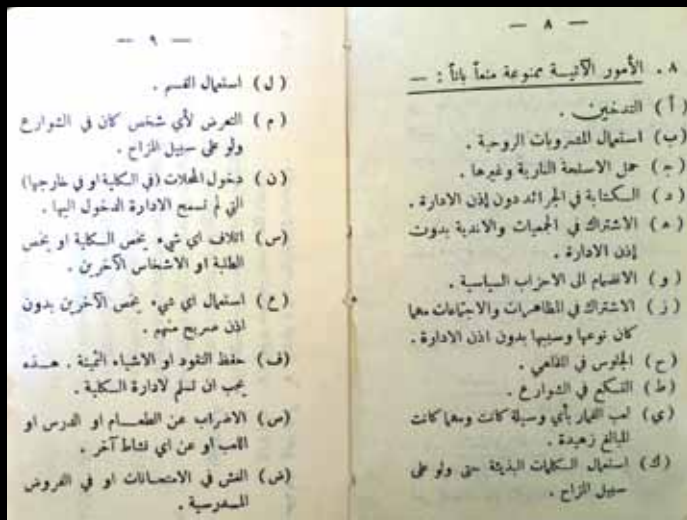 — ٨ —
٨ . الأمور الآتيــة ممنوعة منعاً باتاً : —
( أ ) التدخين .
(ب) استعمال المشروبات الروحية .
(ج) حمل الاسلحة النارية وغيرها .
( د ) الكتابة في الجرائد دون إذن الادارة .
( ه ) الاشتراك في الجمعيات والاندية بدون
إذن الادارة .
( و ) الانضمام الى الاحزاب السياسية .
( ز ) الاشتراك في المظاهرات والاجتماعات مهما
كان نوعها وسببها بدون اذن الادارة .
(ح) الجلوس في المقاهي .
( ط ) التسكع في الشوارع .
(ي) لعب القمار بأي وسيلة كانت ومهما كانت
المبالغ زهيدة .
( ك ) استعمال الكلمات البذيئة حتى ولو على
سبيل المزاح .
— ٩ —
( ل ) استعمال القسم .
( م ) التعرض لأي شخص كان في الشوارع
ولو على سبيل المزاح .
(ن) دخول المحلات (في الكلية او في خارجها)
التي لم تسمح الادارة الدخول اليها .
(س) اتلاف اي شيء يخص الكلية او يخص
الطلبة او الاشخاص الآخرين .
(ع) استعمال اي شيء يخص الآخرين بدون
اذن صريح منهم .
(ف) حفظ النقود او الاشياء الثمينة . هــذه
يجب ان تسلم لادارة الكلية .
(ص) الاضراب عن الطعــام او الدرس او
اللعب او عن اي نشاط آخر .
(ض) الغش في الامتحــانات او في الفروض
المــدرسية .